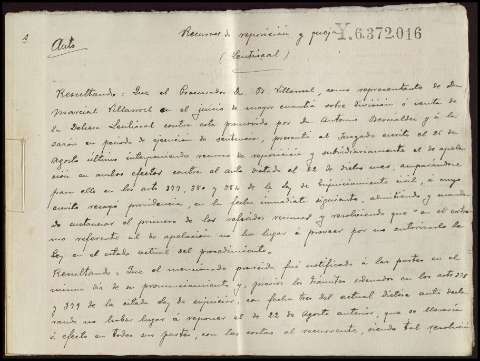 Recurso de reposición y queja
Y.6.372.016
Auto
(Lentiscal)
Resultando: Que el Procurador Dn. Bd. Villarreal, como representante de Dn.
Marcial Villarreal en el juicio de mayor cuantía sobre división ó venta de
la Dehesa Lentiscal contra este promovido por Dn. Antonio Bernaldez y á la
sazón en período de ejecución de sentencia, presentó al Juzgado escrito el 26 de
Agosto último interponiendo recurso de reposición y subsidiariamente el de apela-
ción en ambos efectos contra el auto dictado el 22 de dicho mes, amparándose
para ello en los arts 377, 380 y de la ley de Enjuiciamiento civil, á cuyo
escrito recayó providencia, en la fecha inmediata siguiente, admitiendo y mandan-
do sustanciar el primero de los referidos recursos y resolviendo que "en el extre-
mo referente al de apelación no ha lugar á proveer por no autorizarlo la
Ley en el estado actual del procedimiento.
Resultando: Que el mencionado proveído fué notificado á las partes en el
mismo día de su pronunciamiento y, previos los trámites ordenados en los arts 378
y 379 de la citada ley de enjuiciar, con fecha tres del actual dictóse auto decla-
rando no haber lugar á reponer el de 22 de Agosto anterior, que se llevaría
á efecto en todas sus partes, con las costas al recurrente, siendo tal resolución